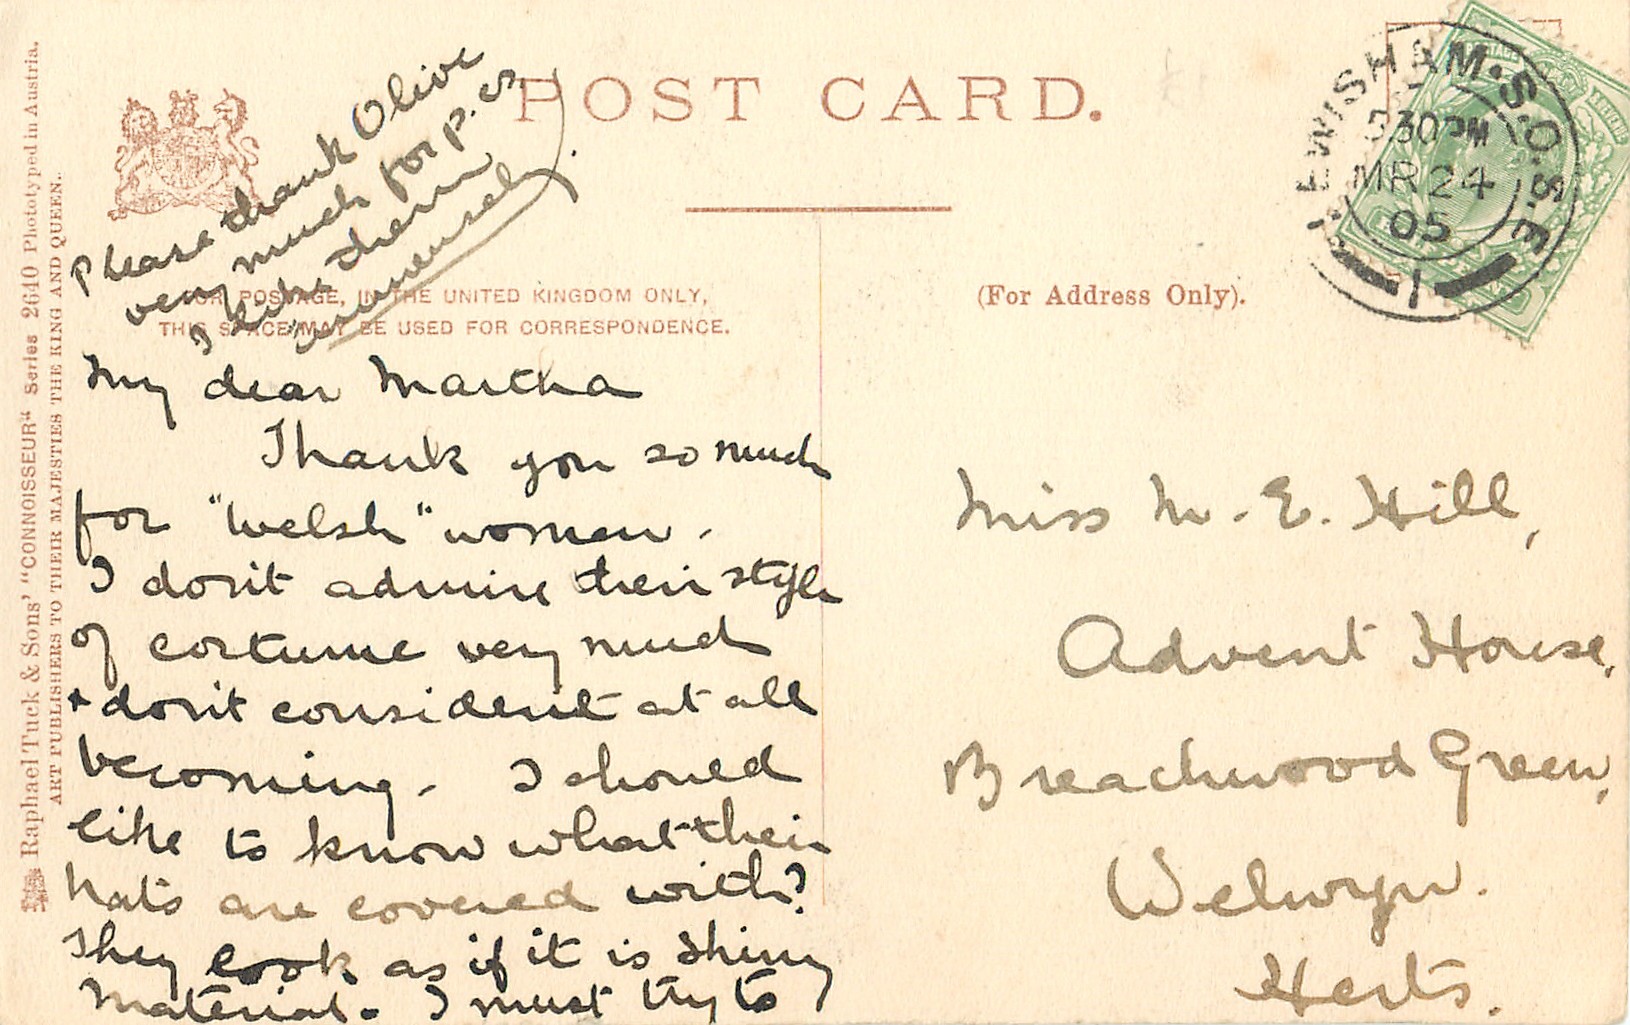 POST CARD.
Please thank Olive
very much for p. cs
I like them
immensely.
FOR POSTAGE, IN THE UNITED KINGDOM ONLY,
THIS SPACE MAY BE USED FOR CORRESPONDENCE.
(For Address Only).
LEWISHAM. S.O. S.E
30 PM
MR 24
05
1
My dear Martha
Thank you so much
for "Welsh" women.
I don't admire their style
of costume very much
& don't consider it at all
becoming. I should
like to know what their
hats are covered with?
They look as if it is shiny
material. I must try to
Miss M. E. Hill,
Advent House,
Breachwood Green,
Welwyn.
Herts.
Raphael Tuck & Sons' "CONNOISSEUR" Series 2640 Phototyped in Austria.
ART PUBLISHERS TO THEIR MAJESTIES THE KING AND QUEEN.